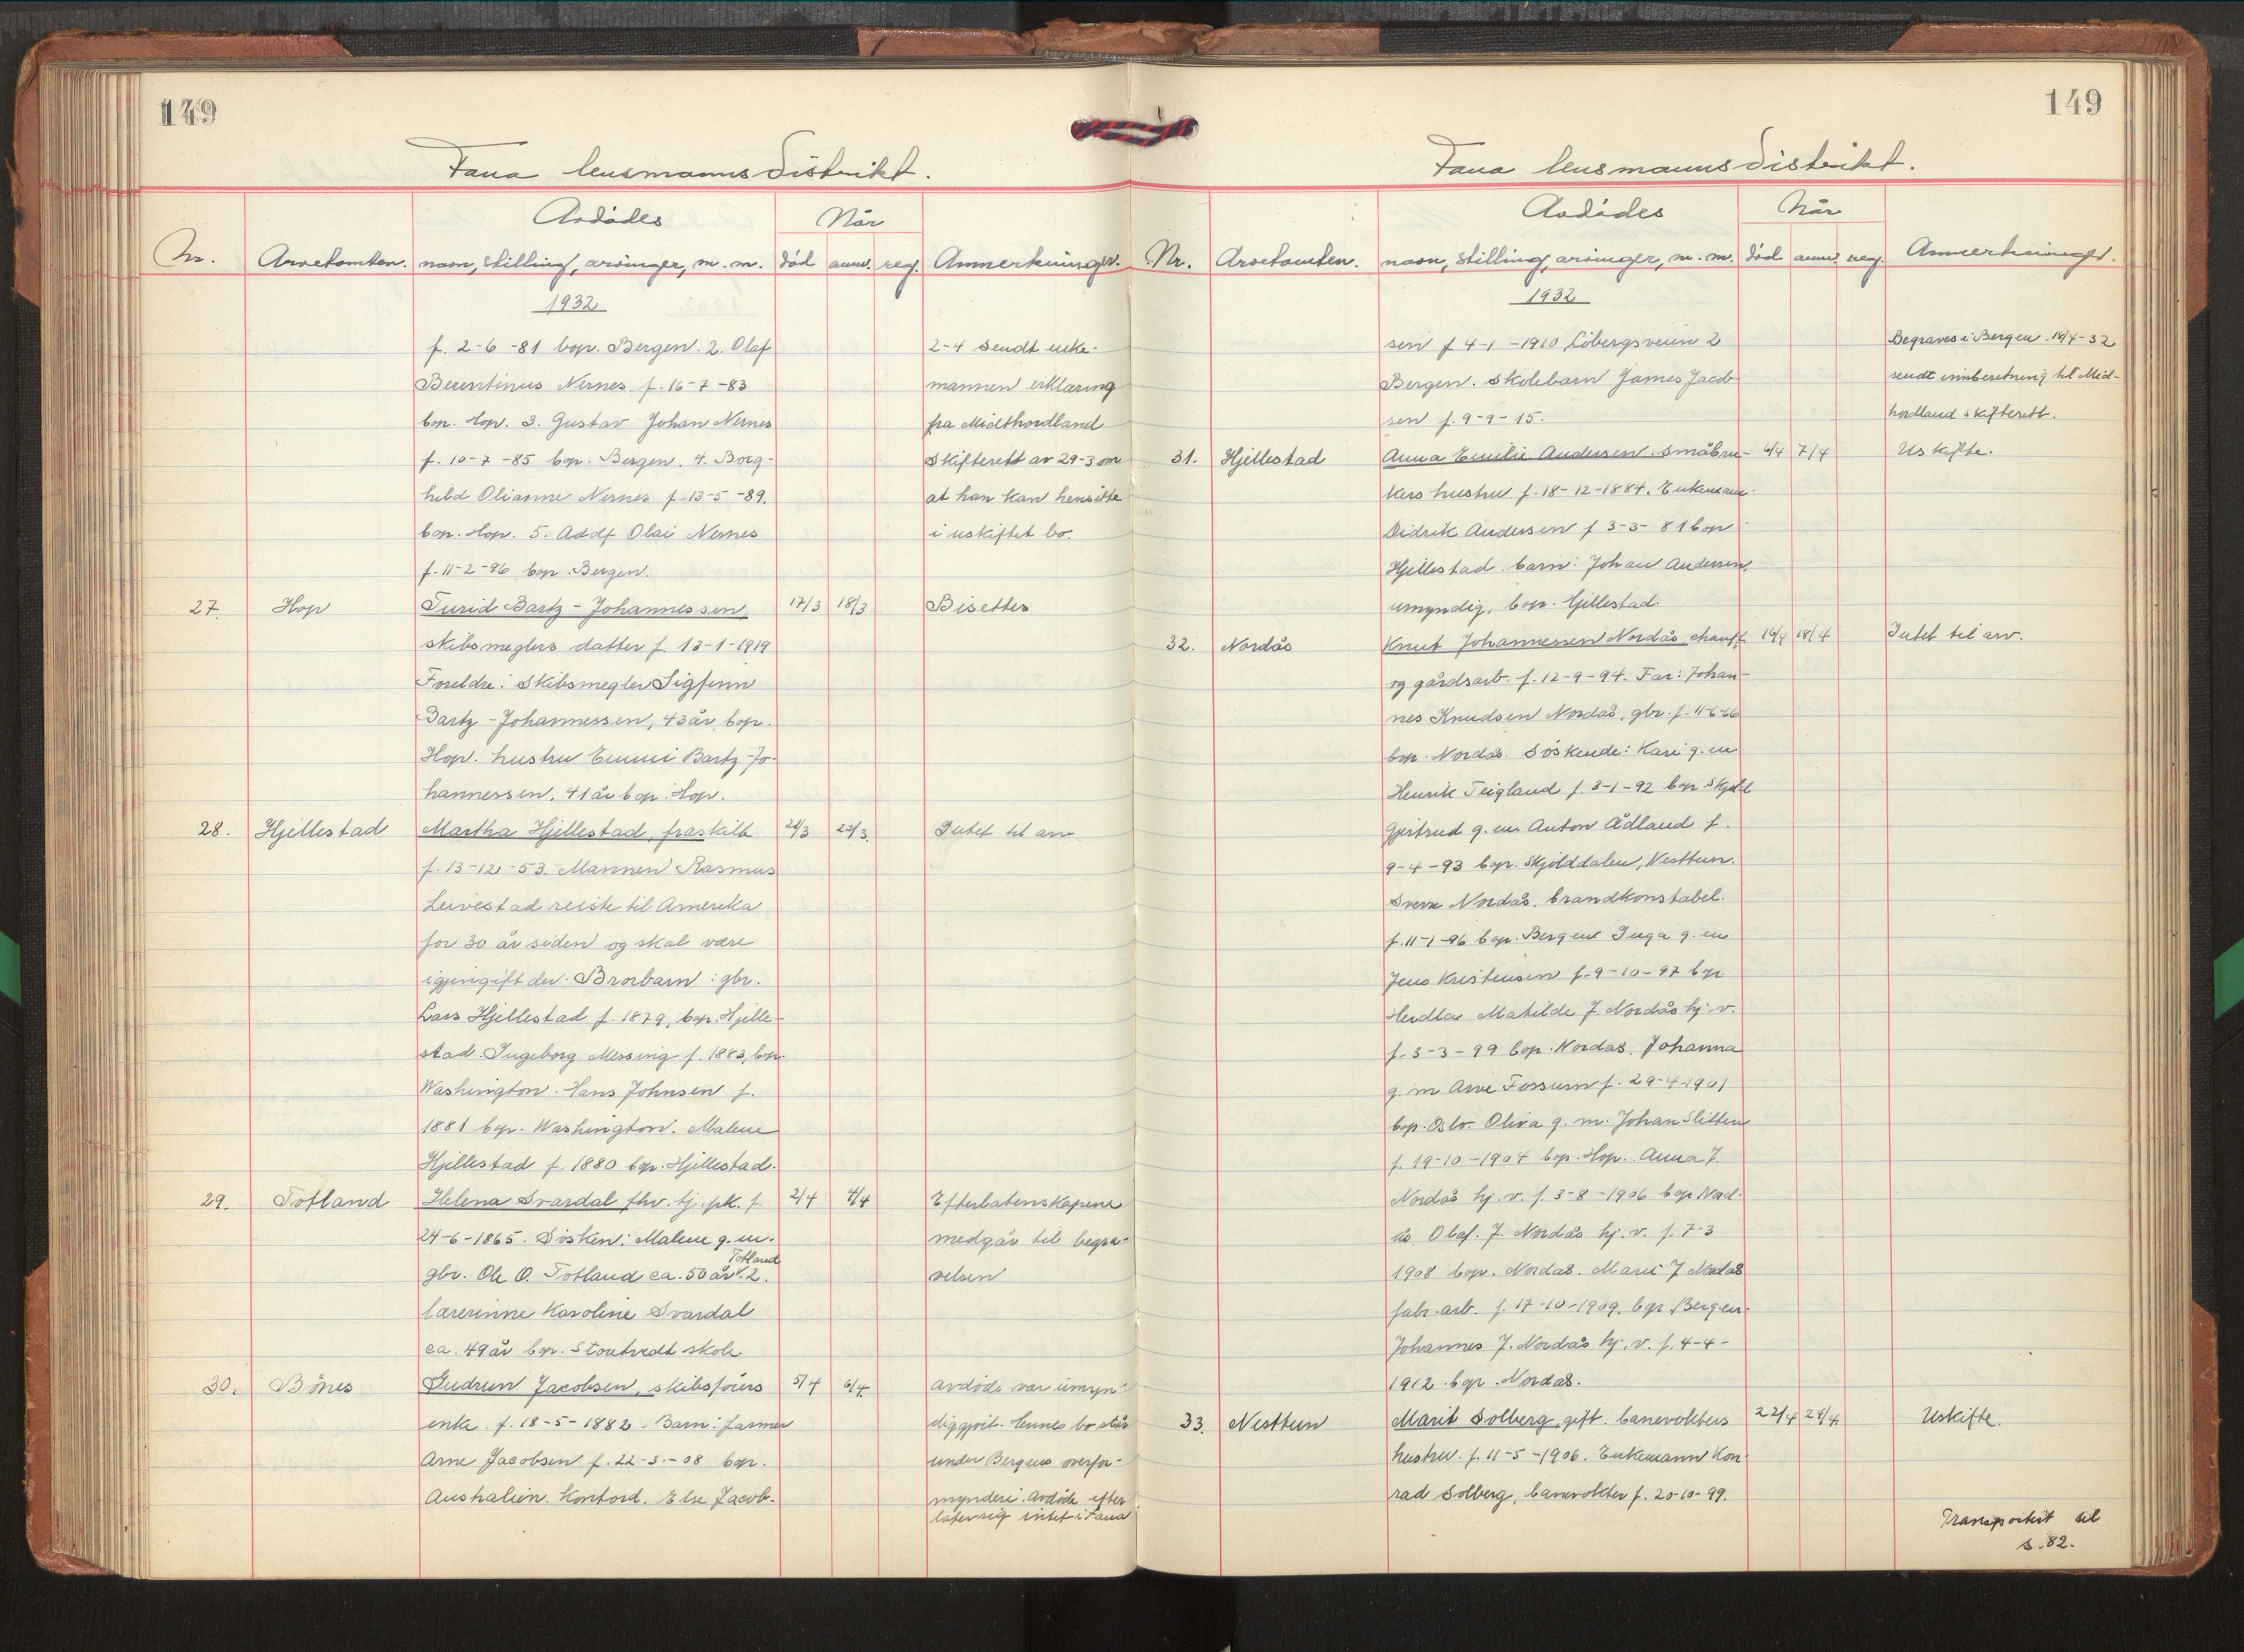 149
Fana lensmannsdistrikt.
Avdødes
Når
Nr. Arvetomten. navn, stilling, arvinger, m. m. død anm. reg. Anmerkninger.
1932
f. 2-6-81 bop. Bergen. 2. Olaf 2-4 sendt enke-
Berentinus Nernes f. 16-7-83 mannen erklæring
bop. Hop. 3. Gustav Johan Nernes fra Midthordland
f. 10-7-85 bop. Bergen. 4. Borg- Skifterett av 29-3 om
hild Olianne Nernes f. 13-5-89. at han kan hensitte
bop. Hop. 5. Adolf Olai Nernes i uskiftet bo.
f. 11-2-96 bop. Bergen.
27. Hop Turid Bartz-Johannessen 17/3 18/3 Bisettes
skibsmeglers datter f. 13-1-1919
Foreldre: Skibsmegler Sigfinn
Bartz-Johannessen, 43 år, bop.
Hop. hustru Emmi Bartz-Jo-
hannessen, 41 år bop. Hop.
28. Hjellestad Martha Hjellestad, fraskilt /3 /3 Intet til arv
f. 13-12-53. Mannen Rasmus
Leivestad reiste til Amerika
for 30 år siden og skal være
igjengift der. Brorbarn: gbr.
Lars Hjellestad f. 1879, bop. Hjelle-
stad. Ingeborg Messing f. 1883, bop.
Washington. Hans Johnsen f.
1881 bop. Washington. Malene
Hjellestad f. 1880 bop. Hjellestad.
29. Totland Helena Svardal fhv. tj. pk. f. 2/4 4/4 Efterlatenskapene
24-6-1865. Søsken: Malene g. m. medgår til begra-
Totland
gbr. Ole O. Totland ca. 50 år. 2. velsen
lærerinne Karoline Svardal
ca. 49 år bop. Storetvedt skole
30. Bønes Gudrun Jacobsen, skibsførers 5/4 6/4 avdøde var umyn-
enke. f. 18-5-1882. Barn: farmer diggjort. Hennes bo står
Arne Jacobsen f. 22-3-08 bop. under Bergens overfor-
Australien. Kontord. Else Jacob- mynderi. Avdøde efter
later sig intet i Fana
149
Fana lensmannsdistrikt.
Avdødes
Når
Nr. Arvetomten. navn, stilling, arvinger, m. m. død anm. reg. Anmerkninger.
1932
sen f 4-1-1910 Løbergsveien 2 Begraves i Bergen. 18/4-32
Bergen. Skolebarn James Jacob- sendt innberetning til Mid-
sen f. 9-9-15. hordland skifterett.
31. Hjellestad Anna Emilie Andersen. småbru- 6/4 7/4 Uskifte.
kers hustru f. 18-12-1884. Enkemann
Didrik Andersen f 3-3-81 bop
Hjellestad. barn: Johan Andersen,
umyndig, bop. Hjellestad.
32. Nordås Knut Johannessen Nordås, chauff. 16/4 18/4 Intet til arv.
og gårdsarb. f. 12-9-94. Far: Johan-
nes Knudsen Nordås, gbr. f. 11-6-66
bop. Nordås. Søskende: Kari g. m
Henrik Teigland f. 3-1-92 bop Skjold
Gjertrud g. m. Anton Ådland f.
9-4-93 bop. Skjolddalen, Nesttun.
Sverre Nordås. brandkonstabel.
f. 11-1-96 bop. Bergen Inga g. m
Jens Kristensen f. 9-10-97 bop
Herdla Matilde J. Nordås hj. v.
f. 3-3-99 bop. Nordås. Johanna
g. m Arne Fossum f. 29-4-1901
bop. Oslo. Oliva g. m. Johan Slitten
f. 19-10-1904 bop. Hop. Anna J.
Nordås hj. v. f. 3-8-1906 bop Nord-
ås. Olaf. J. Nordås hj. v. f. 7-3
1908 bop. Nordås. Marie J Nordås
fabr. arb. f. 17-10-1909. bop Bergen.
Johannes J. Nordås hj. v. f. 4-4-
1912. bop. Nordås.
33. Nesttun Marit Solberg, gift. banevokters 22/4 24/4 Uskifte.
hustru. f. 11-5-1906. Enkemann Kon-
rad Solberg, banevokter f. 20-10-99.
Transportert til
s. 82.